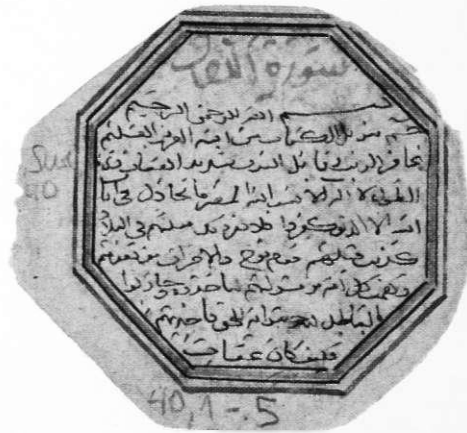 سورة
بسم الله الرحمن الرحيم
حم تنزيل الكتاب من الله العزيز العليم
غافر الذنب وقابل التوب شديد العقاب ذي
الطول لا اله الا هو اليه المصير ما يجادل في ايا
الله الا الذين كفروا فلا يغررك تقلبهم في البلاد
كذبت قبلهم قوم نوح والاحزاب من بعدهم
وهمت كل امة برسولهم لياخذوه وجادلوا
بالباطل ليدحضوا به الحق فاخذتهم
فكيف كان عقاب
Sure
40
40,1-5